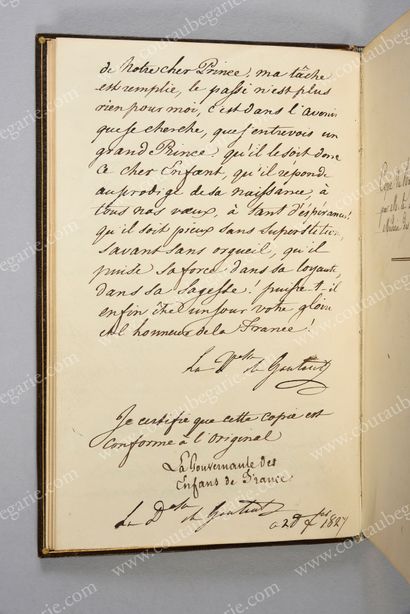 de Notre cher Prince, ma tâche
est remplie, le passé n'est plus
rien pour moi, c'est dans l'avenir
que je cherche, que j'entrevois un
grand Prince! qu'il le soit donc
ce cher Enfant, qu'il réponde
au prodige de sa naissance à
tous nos vœux, à tant d'espérances!
qu'il soit pieux sans superstition,
savant sans orgueil, qu'il
puise sa force dans sa loyauté,
dans sa sagesse! puisse-t-il
enfin être un jour votre gloire
et l'honneur de la France!
La Dsse de Gontaut
Je certifie que cette copie est
conforme à l'Original
La Gouvernante des
Enfans de France
La Dsse de Gontaut
1827
coutaubegarie.com